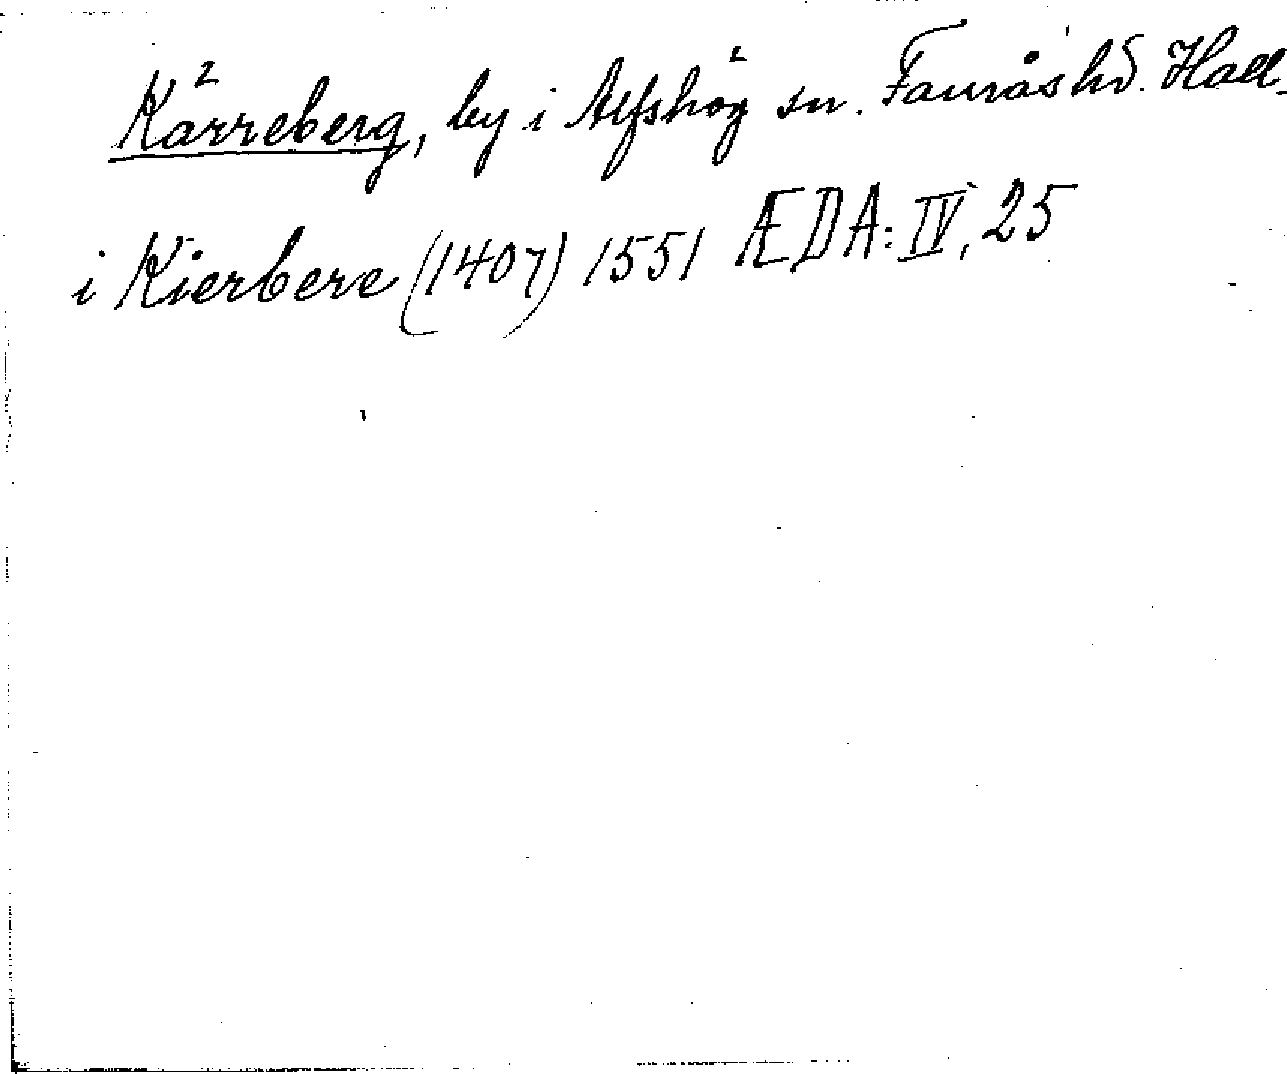 Kärreberg, by i Alfshög sn. Fauråshd. Hall.
i Kierbere (1407) 1551 ÆDA: IV, 25